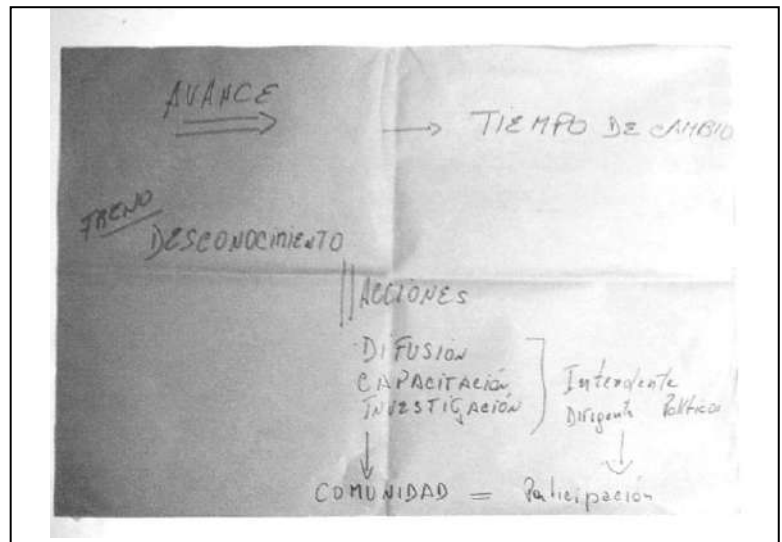 AVANCE
→ TIEMPO DE CAMBIO
FRENO
DESCONOCIMIENTO
ACCIONES
DIFUSIÓN
CAPACITACIÓN
INVESTIGACIÓN
Intendente
Dirigente Políticos
COMUNIDAD = Participación